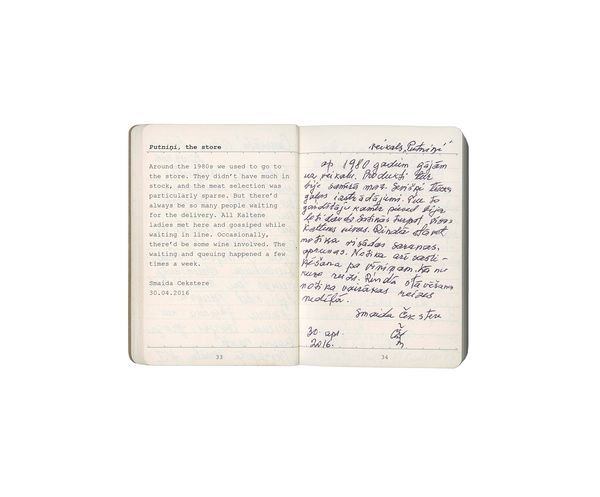 Putniņi, the store
Around the 1980s we used to go to
the store. They didn't have much in
stock, and the meat selection was
particularly sparse. But there'd
always be so many people waiting
for the delivery. All Kaltene
ladies met here and gossiped while
waiting in line. Occasionally,
there'd be some wine involved. The
waiting and queuing happened a few
times a week.
Smaida Cekstere
30.04.2016
33
veikals, Putniņi"
ap 1980 gadiem gājām
uz veikalu. Produkti tur
bija samērā maz.
gaļas izstrādājumi.
gaidītāju kamēr pieved bija
ļoti daudz. turpat visas
Kaltenes sievas. Rindā stāvot
notika visādas sarunas,
aprunas. Notika arī
pa vīniņam.
reize. Rindā stāvēšana
notika vairākas reizes
nedēļā.
Smaida Čekstere
30. apr.
2016.
34